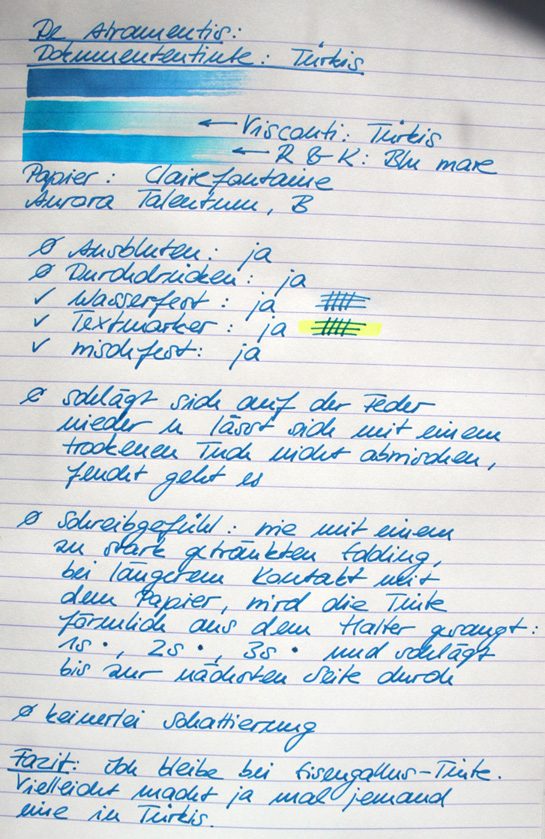 De Atramentis:
Dokumententinte: Türkis
← Visconti: Türkis
← R & K: Blu mare
Papier: Clairefontaine
Aurora Talentum, B
Ø Ausbluten: ja
Ø Durchdrücken: ja
✓ Wasserfest: ja
✓ Textmarker: ja
✓ mischfest: ja
Ø schlägt sich auf der Feder
nieder u lässt sich mit einem
trockenen Tuch nicht abwischen,
feucht geht es
Ø Schreibgefühl: wie mit einem
zu stark getränkten Edding,
bei längerem Kontakt mit
dem Papier, wird die Tinte
förmlich aus dem Halter gesaugt:
1s •, 2s •, 3s • und schlägt
bis zur nächsten Seite durch
Ø keinerlei Schattierung
Fazit: Ich bleibe bei Eisengallus-Tinte.
Vielleicht macht ja mal jemand
eine in Türkis.